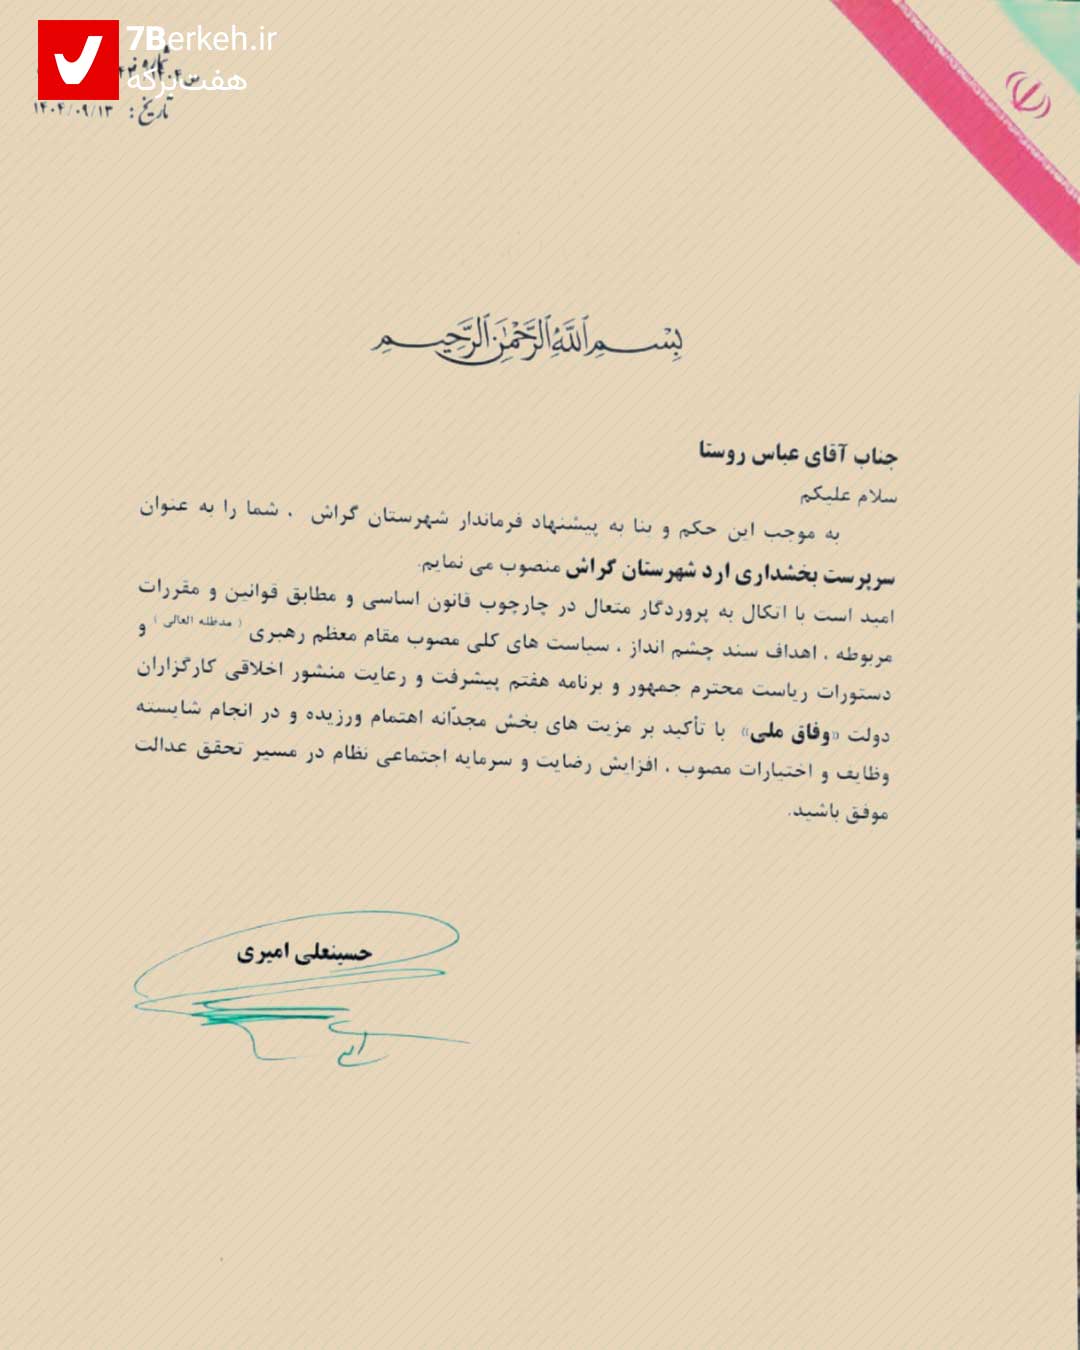 7Berkeh.ir
هفت‌برکه
تاریخ: ۱۴۰۴/۰۹/۱۳
بسم الله الرحمن الرحیم
جناب آقای عباس روستا
سلام علیکم
به موجب این حکم و بنا به پیشنهاد فرماندار شهرستان گراش ، شما را به عنوان
سرپرست بخشداری ارد شهرستان گراش منصوب می نمایم.
امید است با اتکال به پروردگار متعال در چارچوب قانون اساسی و مطابق قوانین و مقررات
مربوطه ، اهداف سند چشم انداز ، سیاست های کلی مصوب مقام معظم رهبری (مدظله العالی) و
دستورات ریاست محترم جمهور و برنامه هفتم پیشرفت و رعایت منشور اخلاقی کارگزاران
دولت «وفاق ملی» با تأکید بر مزیت های بخش مجدّانه اهتمام ورزیده و در انجام شایسته
وظایف و اختیارات مصوب ، افزایش رضایت و سرمایه اجتماعی نظام در مسیر تحقق عدالت
موفق باشید.
حسینعلی امیری